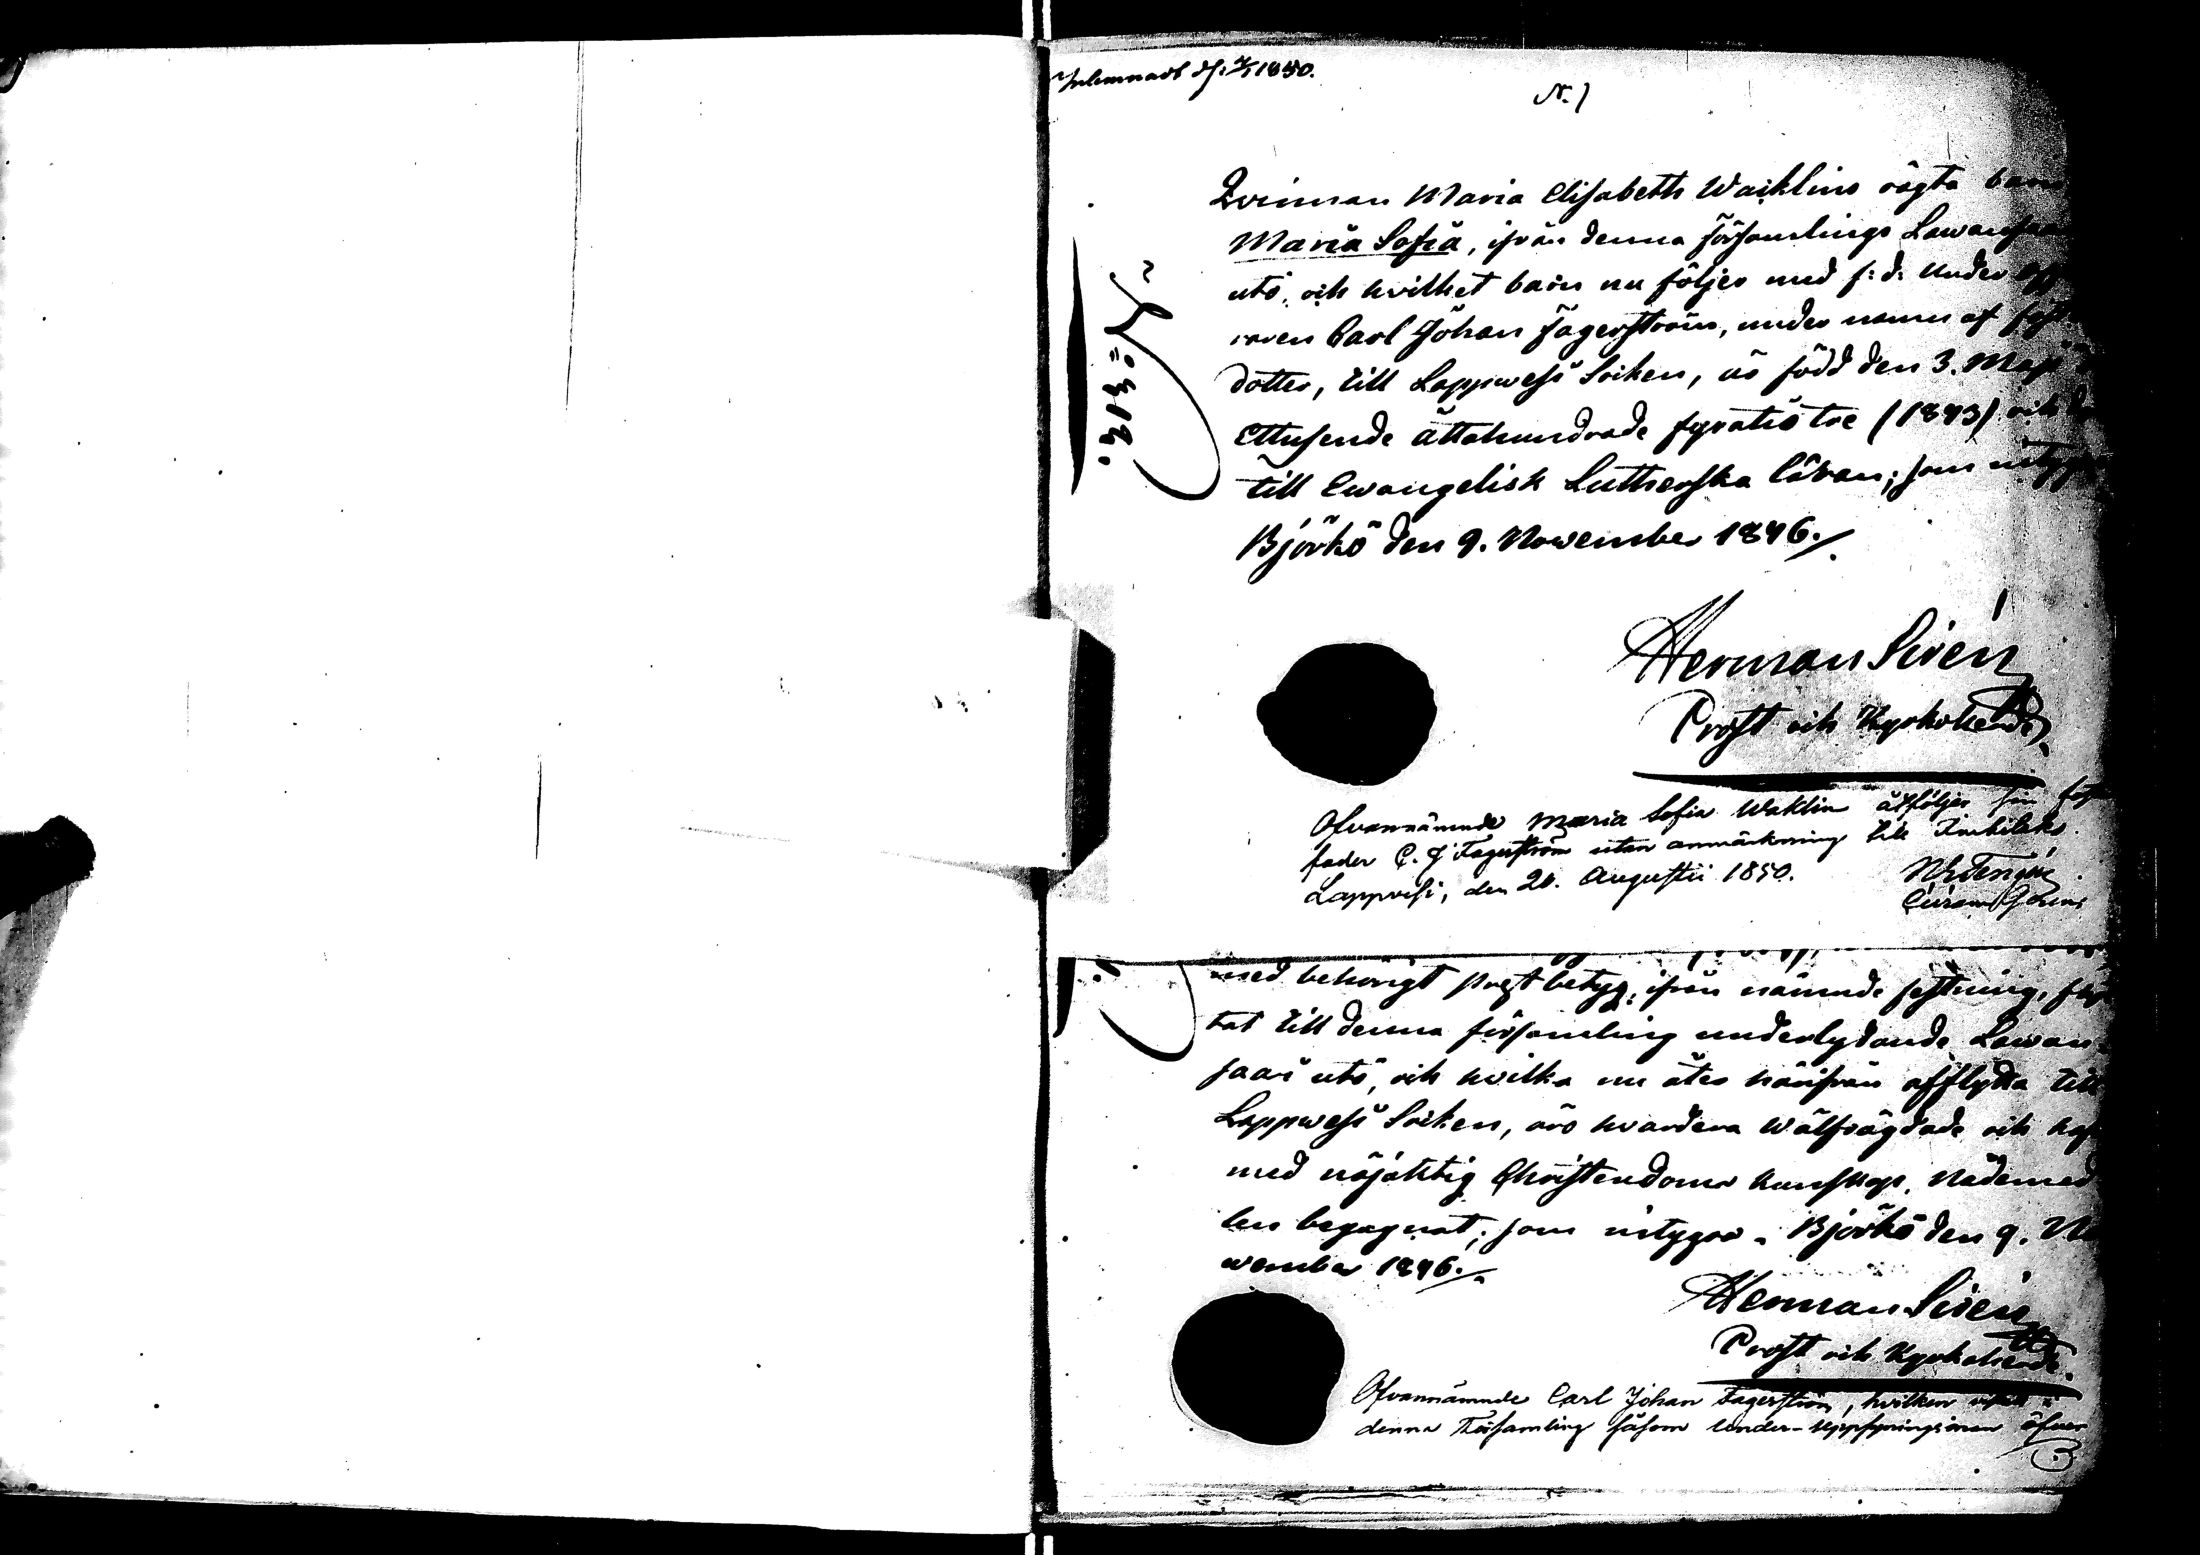 Inlemnadt d. 7/1 1850.
N. 1
N:o 312.
Qvinnan Maria Elisabeth Waiklins oägta barn
Maria Sofia, ifrån denna församlings Lawansaari
utö, och hvilket barn nu följer med f: d: Under
Carl Johan Fagerström, under namn af
dotter, till Lappwesi Socken, är född den 3. Maji
Ettusende åttahundrade fyratio tre (1843) och
till Ewangelisk Lutherska läran; som intygas
Björkö den 9. November 1846.
Herman Sirén
Prost och Kyrkoherde
Ofvannämnde Maria Sofia Waklin åtföljer sin
fader C. J Fagerström utan anmärkning till
Lappvesi, den 20. Augustii 1850.
med behörigt prestbetyg, ifrån nämnde fästning,
tat till denna församling underlydande Lawan-
saari utö, och hvilka nu åter härifrån afflytta till
Lappwesi Socken, äro hvardera wälfrägdade och
med nöjaktig Christendoms kunskap, Nådemed
len begagnat; som intygas. Björkö den 9. No
wember 1846.
Herman Sirén
Prost och Kyrkoherde.
Ofvannämnde Carl Johan Fagerström, hvilken
denna Församling såsom Under-Uppsyningsman öfver